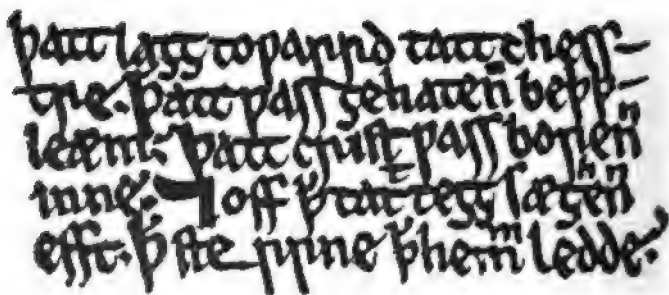 þatt laȝȝ toƿarrd tatt chess-
tre. þatt ƿass ȝehatenn beþþ-
leæm. Þatt crist ƿass borenn
inne. ⁊ off ꝥ tatt teȝȝ sæȝhenn
efft. ꝥ ste rrne ꝥ hemm ledde.